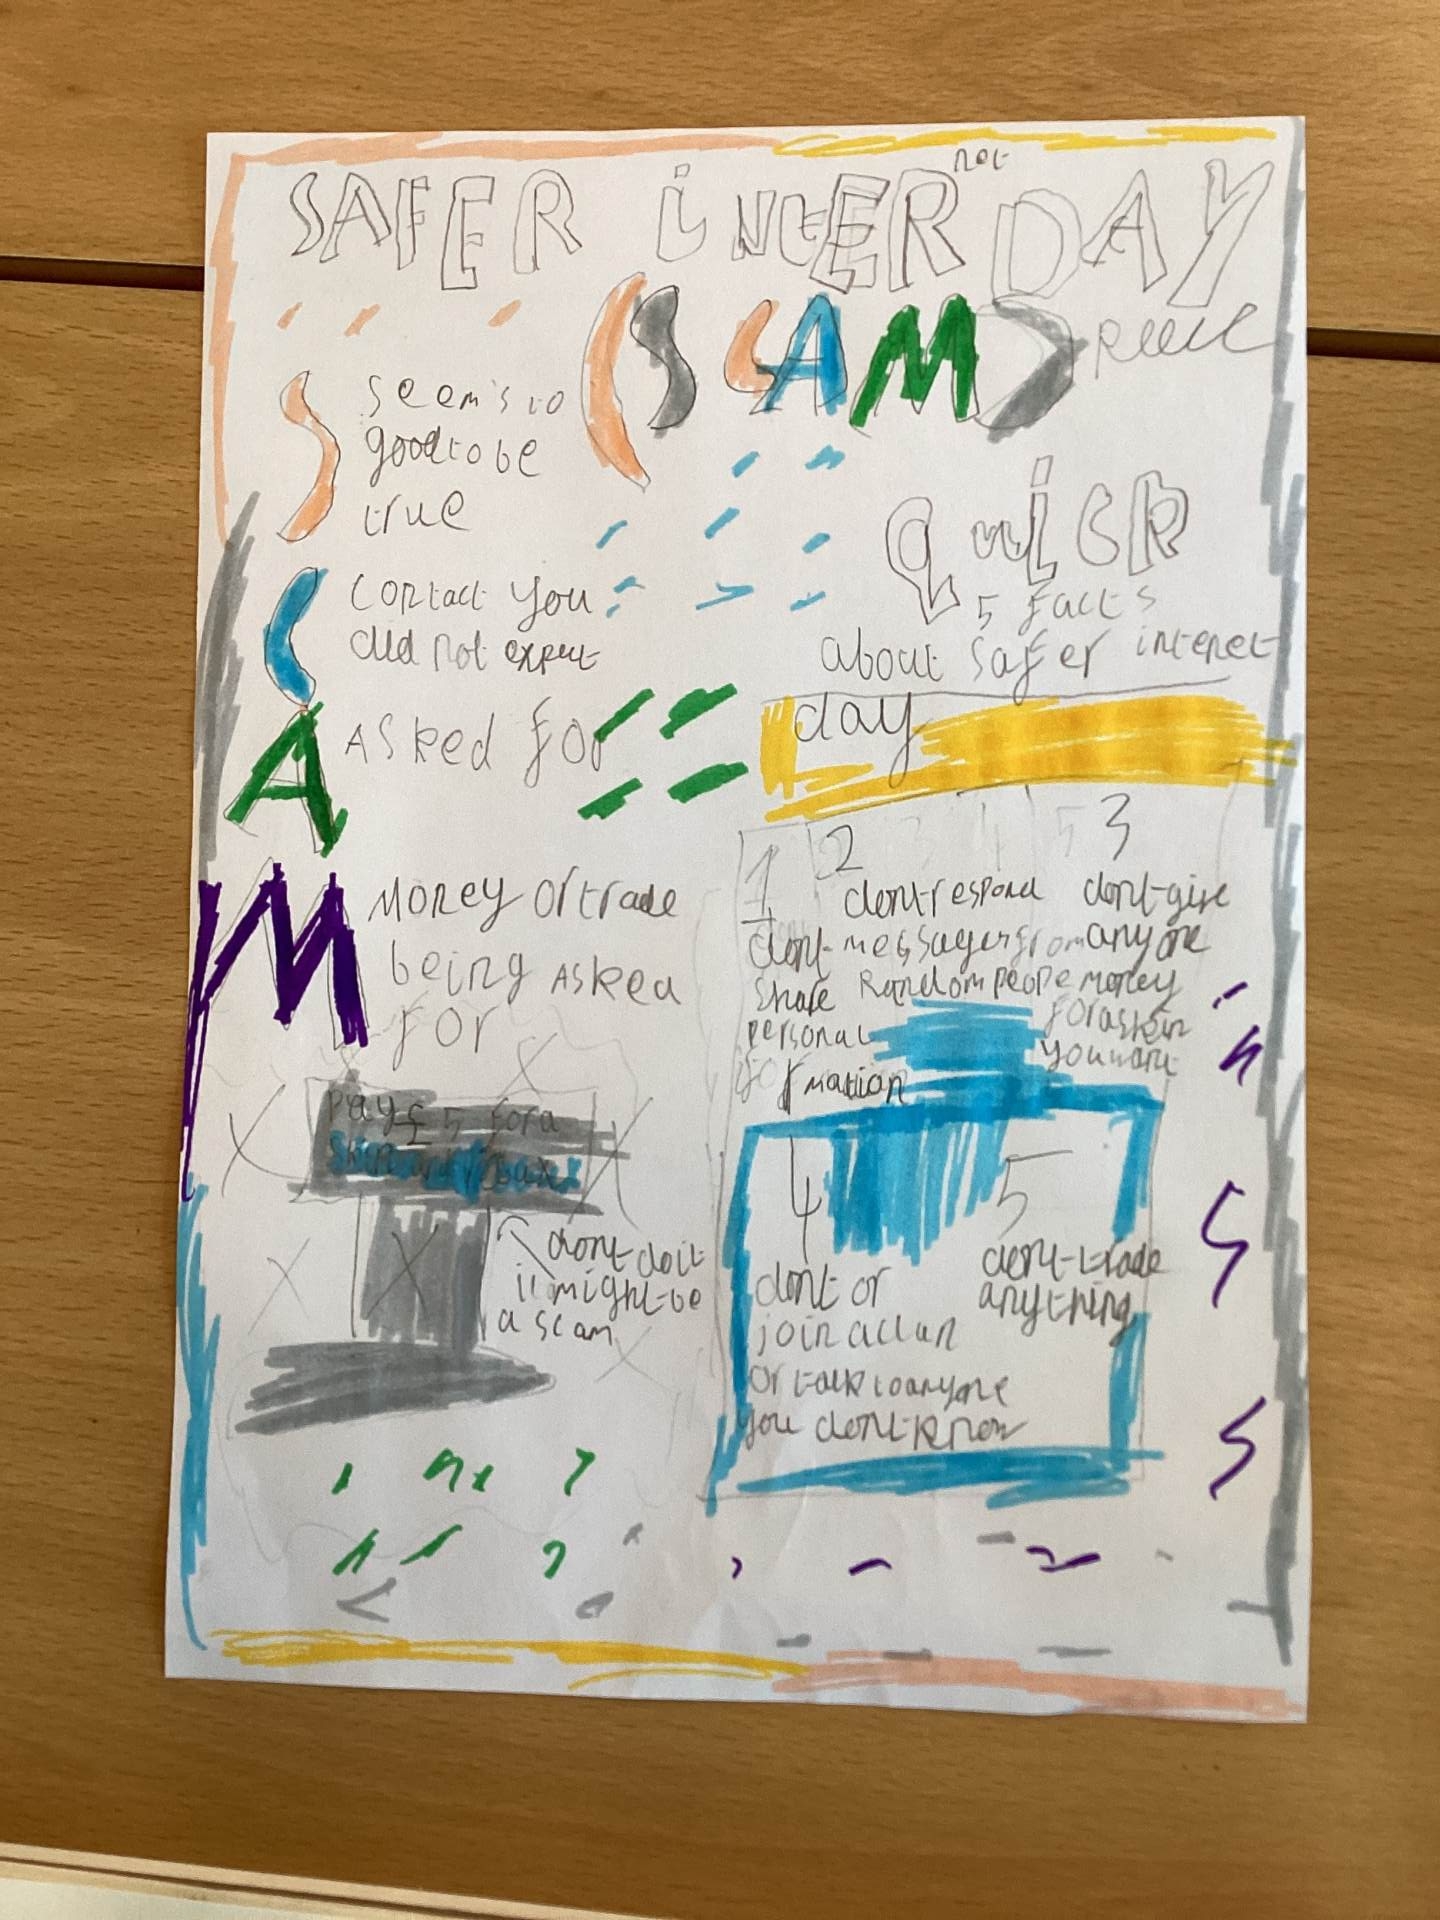 SAFER iNtER DAY
net
(SCAM)
S
seem's to
good to be
true
C
contact you
did not expect
A
Asked for
M
Money or trade
being Asked
for
Pay £5 for a
dont do it
it might be
a scam
quick
5 facts
about safer internet
day
1
dont
share
personal
2
dont respond
messages from
Random people
3
dont give
anyone
money
for a skin
you want
4
dont or
join a clan
or talk to anyone
you dont know
5
dont trade
anything